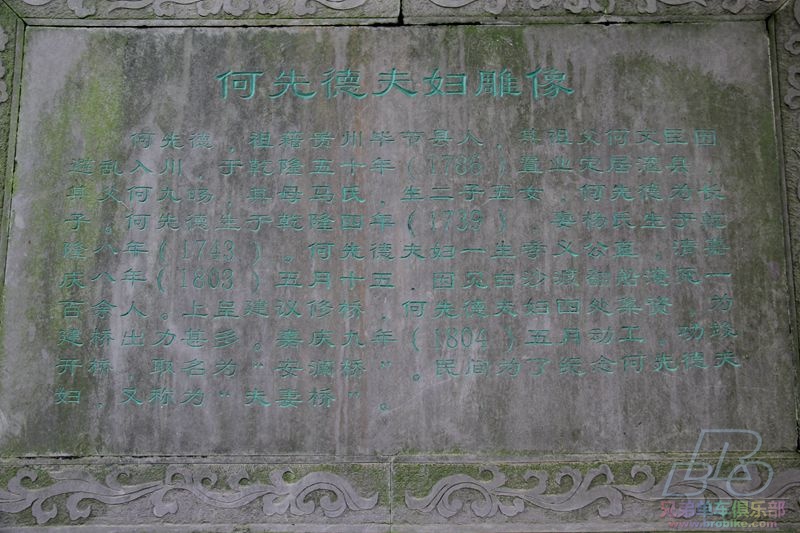 何先德夫妇雕像
何先德，祖籍贵州毕节县人，其祖父何文臣因
避乱入川，于乾隆五十年（1786）置业定居灌县，
其父何九旸，其母马氏，生二子五女，何先德为长
子。何先德生于乾隆四年（1739），妻杨氏生于乾
隆八年（1743）。何先德夫妇一生孝义公直。清嘉
庆八年（1803）五月十五，因见白沙渡翻船淹死一
百余人。上呈建议修桥，何先德夫妇四处筹资，为
建桥出力甚多。嘉庆九年（1804）五月动工，功竣
开桥，取名为“安澜桥”。民间为了纪念何先德夫
妇，又称为“夫妻桥”。
BRO
兄弟单车俱乐部
www.brobike.com